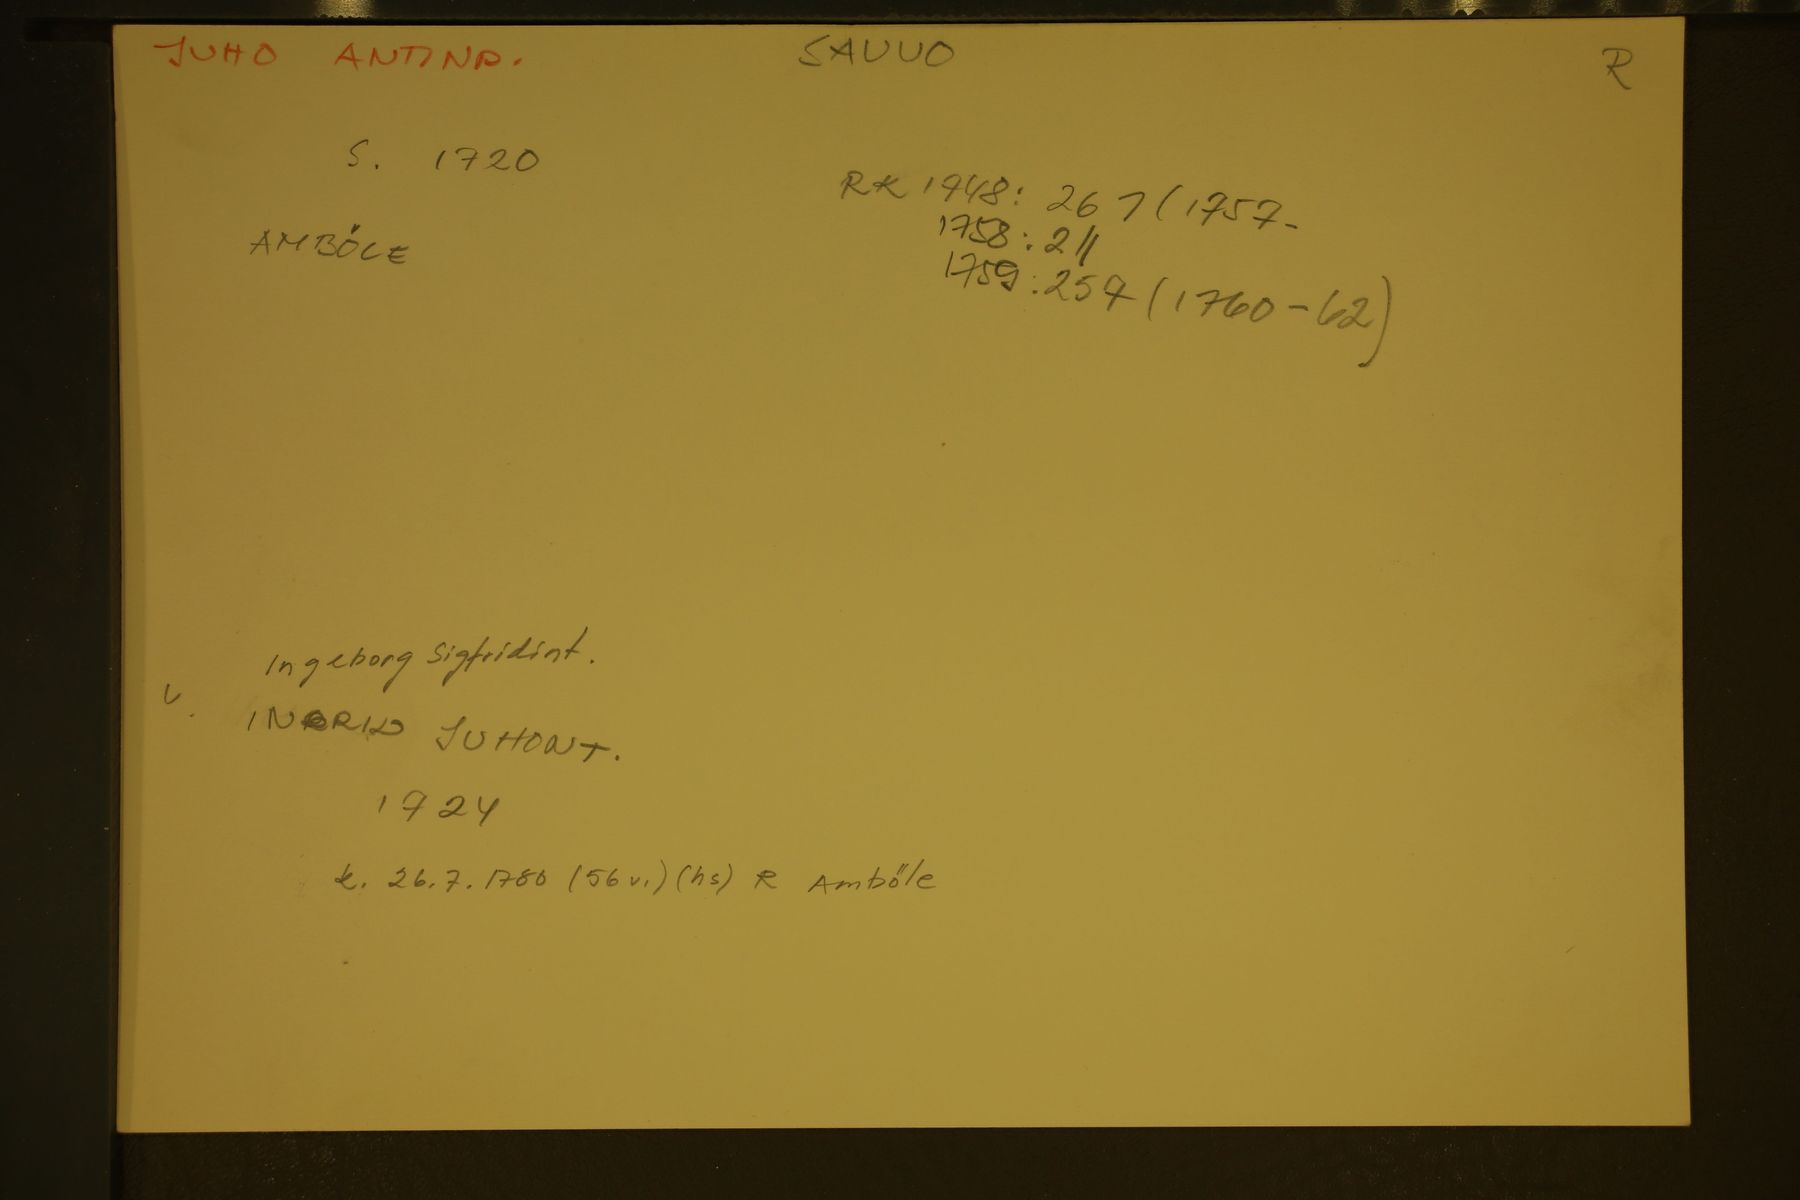 JUHO ANTINP. SAUVO R
S. 1720
RK 1748: 267 (1757-
1758: 211
AMBÖLE
1759: 257 (1760-62)
Ingeborg Sigfridint.
v.
INGRID JUHONT.
1724
k. 26.7.1780 (56 v.) (hs) R Amböle